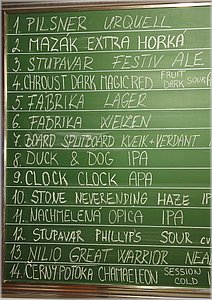 1. PILSNER URQUELL
2. MAZÁK EXTRA HORKÁ
3. STUPAVAR FESTIV ALE
4. CHROUST DARK MAGIC RED FRUIT DARK SOUR
5. FABRIKA LAGER
6. FABRIKA WEIZEN
7. BOARD SPLITBOARD KVEIK+VERDANT
8. DUCK & DOG IPA
9. CLOCK CLOCK APA
10. STOWE NEVERENDING HAZE IP
11. NACHMELENÁ OPICA IPA
12. STUPAVAR PHILLYP'S SOUR
13. NILIO GREAT WARRIOR NEA
14. ČERNÝ POTOKA CHAMAELEON SESSION COLD